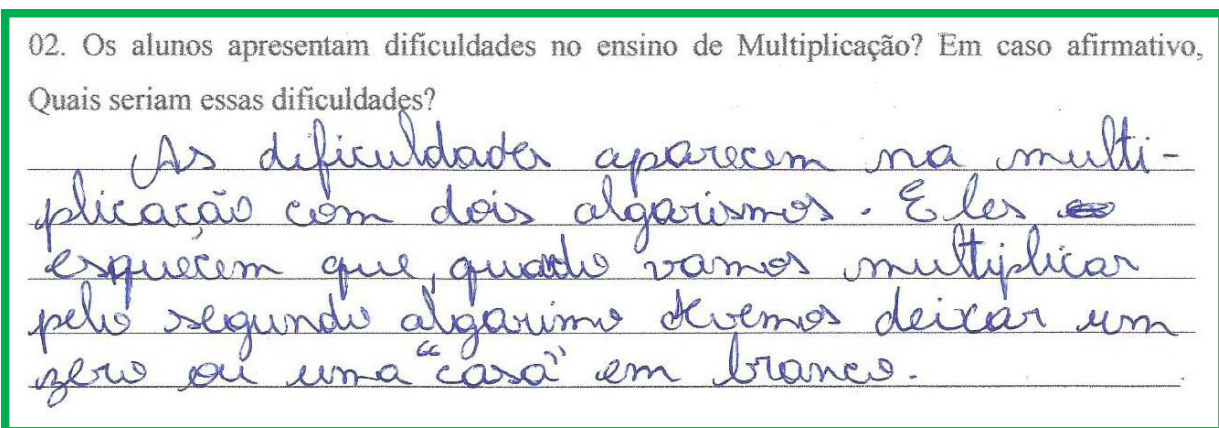 02. Os alunos apresentam dificuldades no ensino de Multiplicação? Em caso afirmativo,
Quais seriam essas dificuldades?
As dificuldades aparecem na multi-
plicação com dois algarismos. Eles
esquecem que, quando vamos multiplicar
pelo segundo algarismo devemos deixar um
zero ou uma "casa" em branco.